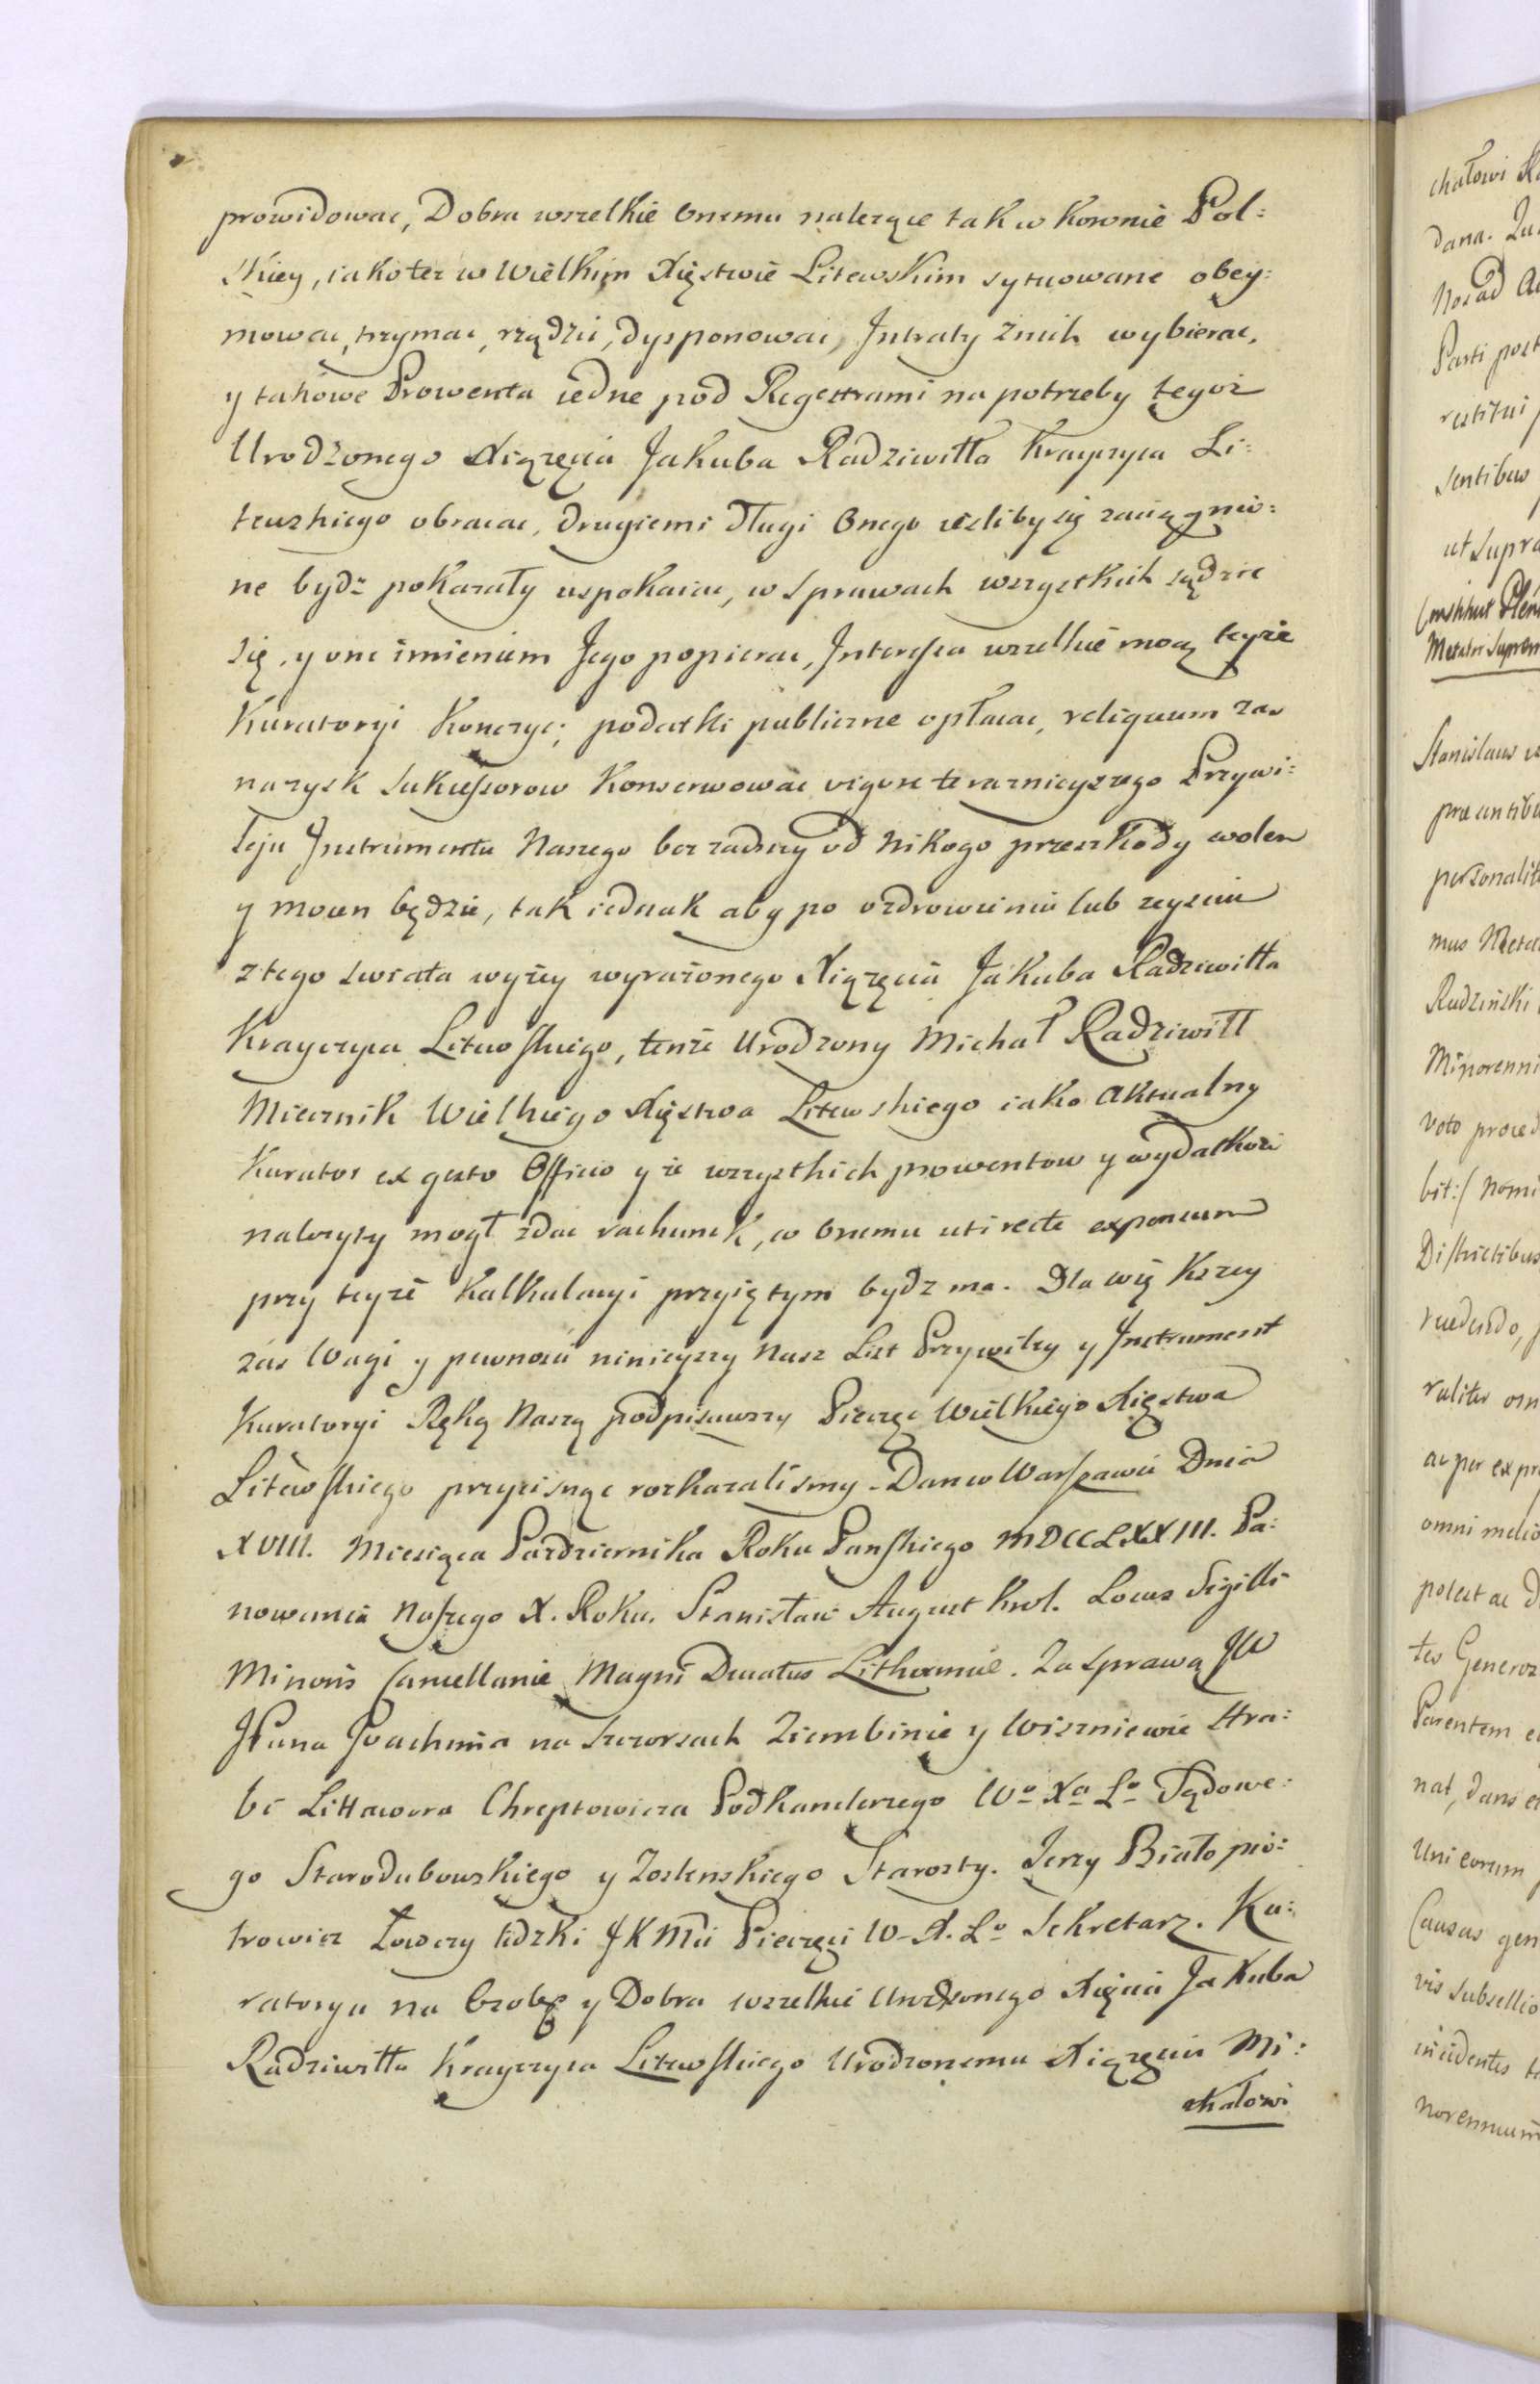 prowidowac, Dobra wszelkie Onemu należące tak w Koronie Pol:
skiey, iako też w Wielkim Xięstwie Litewskim sytuowane obey:
mowac, trzymac, rządzic, dysponowac, Intraty znich wybierac,
y takowe Prowenta iedne pod Regestrami na potrzeby tegoż
Urodzonego Xiążęcia Jakuba Radziwiłła Krayczyca Li:
tewskiego obracac, drugiemi długi Onego ieśliby się zaciągnio:
ne bydź pokazały uspokaiac, w sprawach wszystkich sądzic
się, y one imieniem Jego popierac, Interessa wszelkie mocą teyże
Kuratoryi Konczyc; podatki publiczne opłacac, reliquum zas
na zysk Sukcessorow Konserwowac vigore teraznieyszego Przywi:
leju Instrumentu Naszego bez żadney od Nikogo przeszkody wolen
y mocen będzie, tak iednak aby po ozdrowieniu lub zeysciu
z tego swiata wyżey wyrażonego Xiążęcia Jakuba Radziwiłła
Krayczyca Litewskiego, tenże Urodzony Michał Radziwiłł
Miecznik Wielkiego Xięstwa Litewskiego iako aktualny
Kurator ex gesto Officio y ze wszystkich prowentow y wydatkow
należyty mogł zdac rachunek, co Onemu uti recte expensum
przy teyże Kalkulacyi przyiętym bydz ma. Dla większey
zas Wagi y pewnosci ninieyszy Nasz List Przywiley y Instrument
Kuratoryi Ręką Naszą podpisawszy Pieczęć Wielkiego Xięstwa
Litewskiego przycisnąc rozkazalismy. Dan w Warszawie Dnia
XVIII. Miesiąca Pazdziernika Roku Panskiego MDCCLXXIII. Pa:
nowania Naszego X. Roku. Stanisław August Krol. Locus Sigilli
Minoris Cancellariæ Magni Ducatus Lithvaniæ. Za sprawą JW
JPana Joachima na Szczorsach Ziembinie y Wiszniewie Hra:
bi Littawora Chreptowicza Podkanclerzego Wo Xa Lo Sądowe:
go Starodubowskiego y Starosty. Jerzy Białopio:
trowicz Łowczy Lidzki JKMci Pieczęci W. X. Lo Sekretarz. Ku:
ratorya na Osobę y Dobra wszelkie Urodzonego Xięcia Jakuba
Radziwiłła Krayczyca Litewskiego Urodzonemu Xiążęciu Mi:
chałowi
chałowi
dana.
Parti
restitui
sentibus
ut supra
Stanislaus
personalit
mus
Rudziński
Minorenni
voto proced
bit:/ Nomi
Districtibus
omni
potest ac
tes Generos
Parentem
nat, dans
Uni eorum
Causas gen
vis subsellio
incidentes